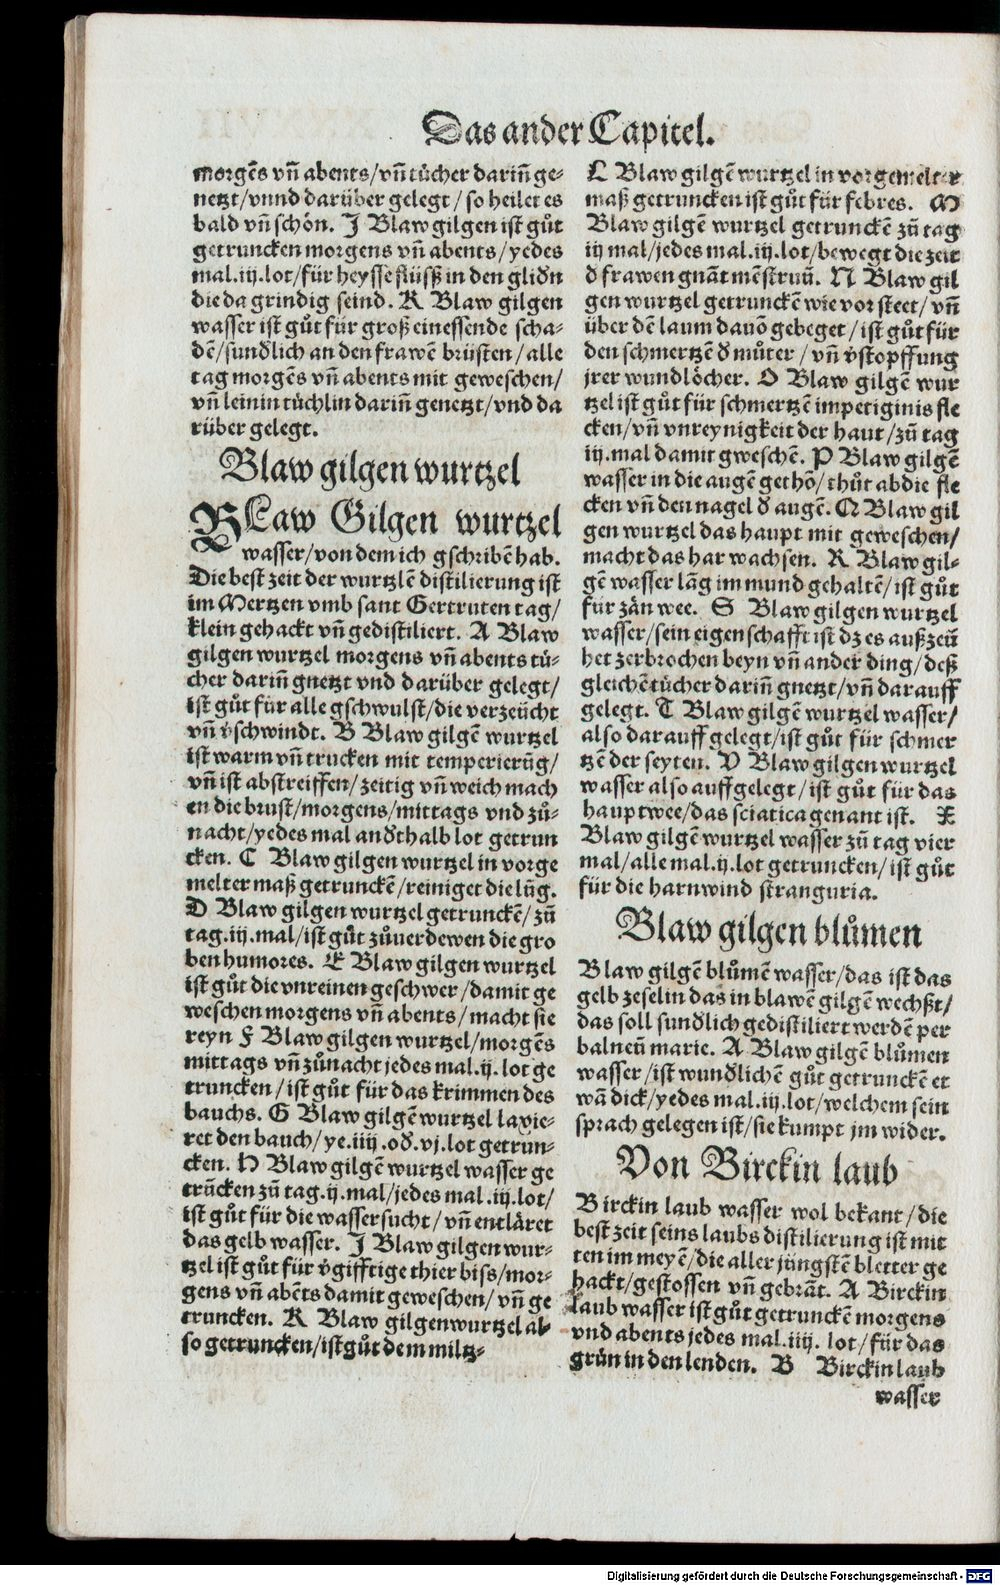 Das ander Capitel.
morgēs vñ abents/vñ tücher dariñ ge-
netzt/vnnd darüber gelegt/so heilet es
bald vñ schön. J Blaw gilgen ist gůt
getruncken morgens vñ abents/yedes
mal.iij.lot/für heysse flüsß in den glidn
die da grindig seind. K Blaw gilgen
wasser ist gůt für groß einessende scha-
dē/sunðlich an den frawē brüsten/alle
tag morgēs vñ abents mit geweschen/
vñ leinin tüchlin dariñ genetzt/vnd da
rüber gelegt.
Blaw gilgen wurtzel
BLaw Gilgen wurtzel
wasser/von dem ich gschribē hab.
Die best zeit der wurtzlē distilierung ist
im Mertzen vmb sant Gertruten tag/
klein gehackt vñ gedistiliert. A Blaw
gilgen wurtzel morgens vñ abents tü-
cher dariñ gnetzt vnd darüber gelegt/
ist gůt für alle gschwulst/die verzeücht
vñ v̄schwindt. B Blaw gilgē wurtzel
ist warm vñ trucken mit temperierūg/
vñ ist abstreiffen/zeitig vñ weich mach
en die brust/morgens/mittags vnd zů-
nacht/yedes mal anðthalb lot getrun
cken. C Blaw gilgen wurtzel in vorge
melter maß getrunckē/reiniget die lūg.
D Blaw gilgen wurtzel getrunckē/zů
tag.iij.mal/ist gůt zůuerdewen die gro
ben humores. E Blaw gilgen wurtzel
ist gůt die vnreinen geschwer/damit ge
weschen morgens vñ abents/macht sie
reyn F Blaw gilgen wurtzel/morgēs
mittags vñ zůnacht jedes mal.ij.lot ge
truncken/ist gůt für das krimmen des
bauchs. G Blaw gilgē wurtzel laxie-
ret den bauch/ye.iiij.oð.vj.lot getrun-
cken. H Blaw gilgē wurtzel wasser ge
trūcken zů tag.ij.mal/jedes mal.iij.lot/
ist gůt für die wassersucht/vñ entläret
das gelb wasser. J Blaw gilgen wur-
tzel ist gůt für v̄gifftige thier biss/mor-
gens vñ abēts damit geweschen/vñ ge
truncken. K Blaw gilgen wurtzel al-
so getruncken/ist gůt dem miltz-
L Blaw gilgē wurtzel in vorgemelter
maß getruncken ist gůt für febres. M
Blaw gilgē wurtzel getrunckē zů tag
iij mal/jedes mal.iij.lot/bewegt die zeit
ð frawen gnāt mēstruū. N Blaw gil
gen wurtzel getrunckē wie vor steet/vñ
über dē laum dauō gebeget/ist gůt für
den schmertzē ð můter/vñ v̄stopffung
jrer wundlöcher. O Blaw gilgē wur
tzel ist gůt für schmertzē impetiginis fle
cken/vñ vnreynigkeit der haut/zů tag
iij.mal damit gweschē. P Blaw gilgē
wasser in die augē gethō/thůt ab die fle
cken vñ den nagel ð augē. Q Blaw gil
gen wurtzel das haupt mit geweschen/
macht das har wachsen. R Blaw gil-
gē wasser lāg im mund gehaltē/ist gůt
für zän wee. S Blaw gilgen wurtzel
wasser/sein eigenschafft ist dz es außzeü
het zerbrochen beyn vñ ander ding/deß
gleichē tücher dariñ gnetzt/vñ darauff
gelegt. T Blaw gilgē wurtzel wasser/
also darauff gelegt/ist gůt für schmer
tzē der seyten. V Blaw gilgen wurtzel
wasser also auffgelegt/ist gůt für das
hauptwee/das sciatica genant ist. X
Blaw gilgē wurtzel wasser zů tag vier
mal/alle mal.ij.lot getruncken/ist gůt
für die harnwind stranguria.
Blaw gilgen blůmen
Blaw gilgē blůmē wasser/das ist das
gelb zeselin das in blawē gilgē wechßt/
das soll sunðlich gedistiliert werdē per
balneū marie. A Blaw gilgē blůmen
wasser/ist wunðlichē gůt getrunckē et
wā dick/yedes mal.iij.lot/welchem sein
sprach gelegen ist/sie kumpt jm wider.
Von Birckin laub
Birckin laub wasser wol bekant/die
best zeit seins laubs distilierung ist mit
ten im meyē/die aller jüngstē bletter ge
hackt/gestossen vñ gebrāt. A Birckin
laub wasser ist gůt getrunckē morgens
vnd abents jedes mal.iiij. lot/für das
grün in den lenden. B Birckin laub
wasser
Digitalisierung gefördert durch die Deutsche Forschungsgemeinschaft - DFG